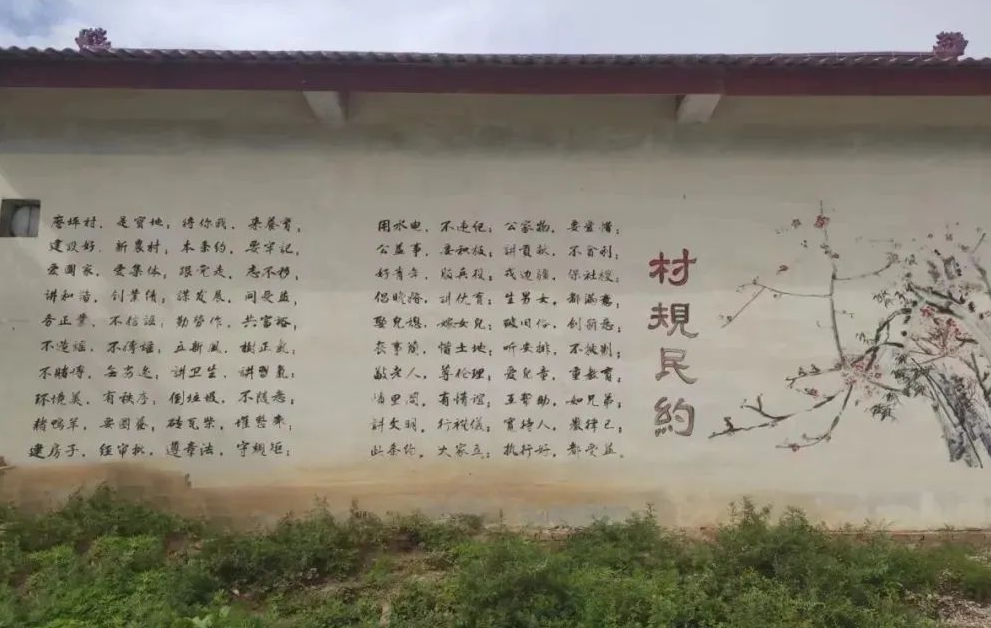 村規民約
坪村，是寶地；將你我，養育；
建設好，新農村，本条约，要牢記；
爱國家，爱集体，跟党走，志不移；
讲和谐，创業绩；謀发展，同受益；
务正業，不信；勤劳作，共富裕；
不造謡，不傳謡；立新風，樹正氣；
不賭博，讲卫生，
环境美，有秩序；倒垃圾，不随意；
鸭羊，要圈养，砖瓦柴，堆整齐；
建房子，经审批，遵章法，守規矩；
用水电，不违纪；公家物，要爱惜；
公益事，要积极；讲貢献，不貪利；
好青年，服兵役；戍边疆，保社稷；
倡晚婚，讲优育；生男女，都滿意；
娶兒媳，嫁女兒；破旧俗，创新意；
丧事简，惜土地；听安排，不
敬老人，尊伦理；爱兒童，重教育；
邻里间，有情谊；互帮助，如兄弟；
讲文明，行礼仪；宽待人，嚴律己；
此条约，大家立；执行好，都受益。